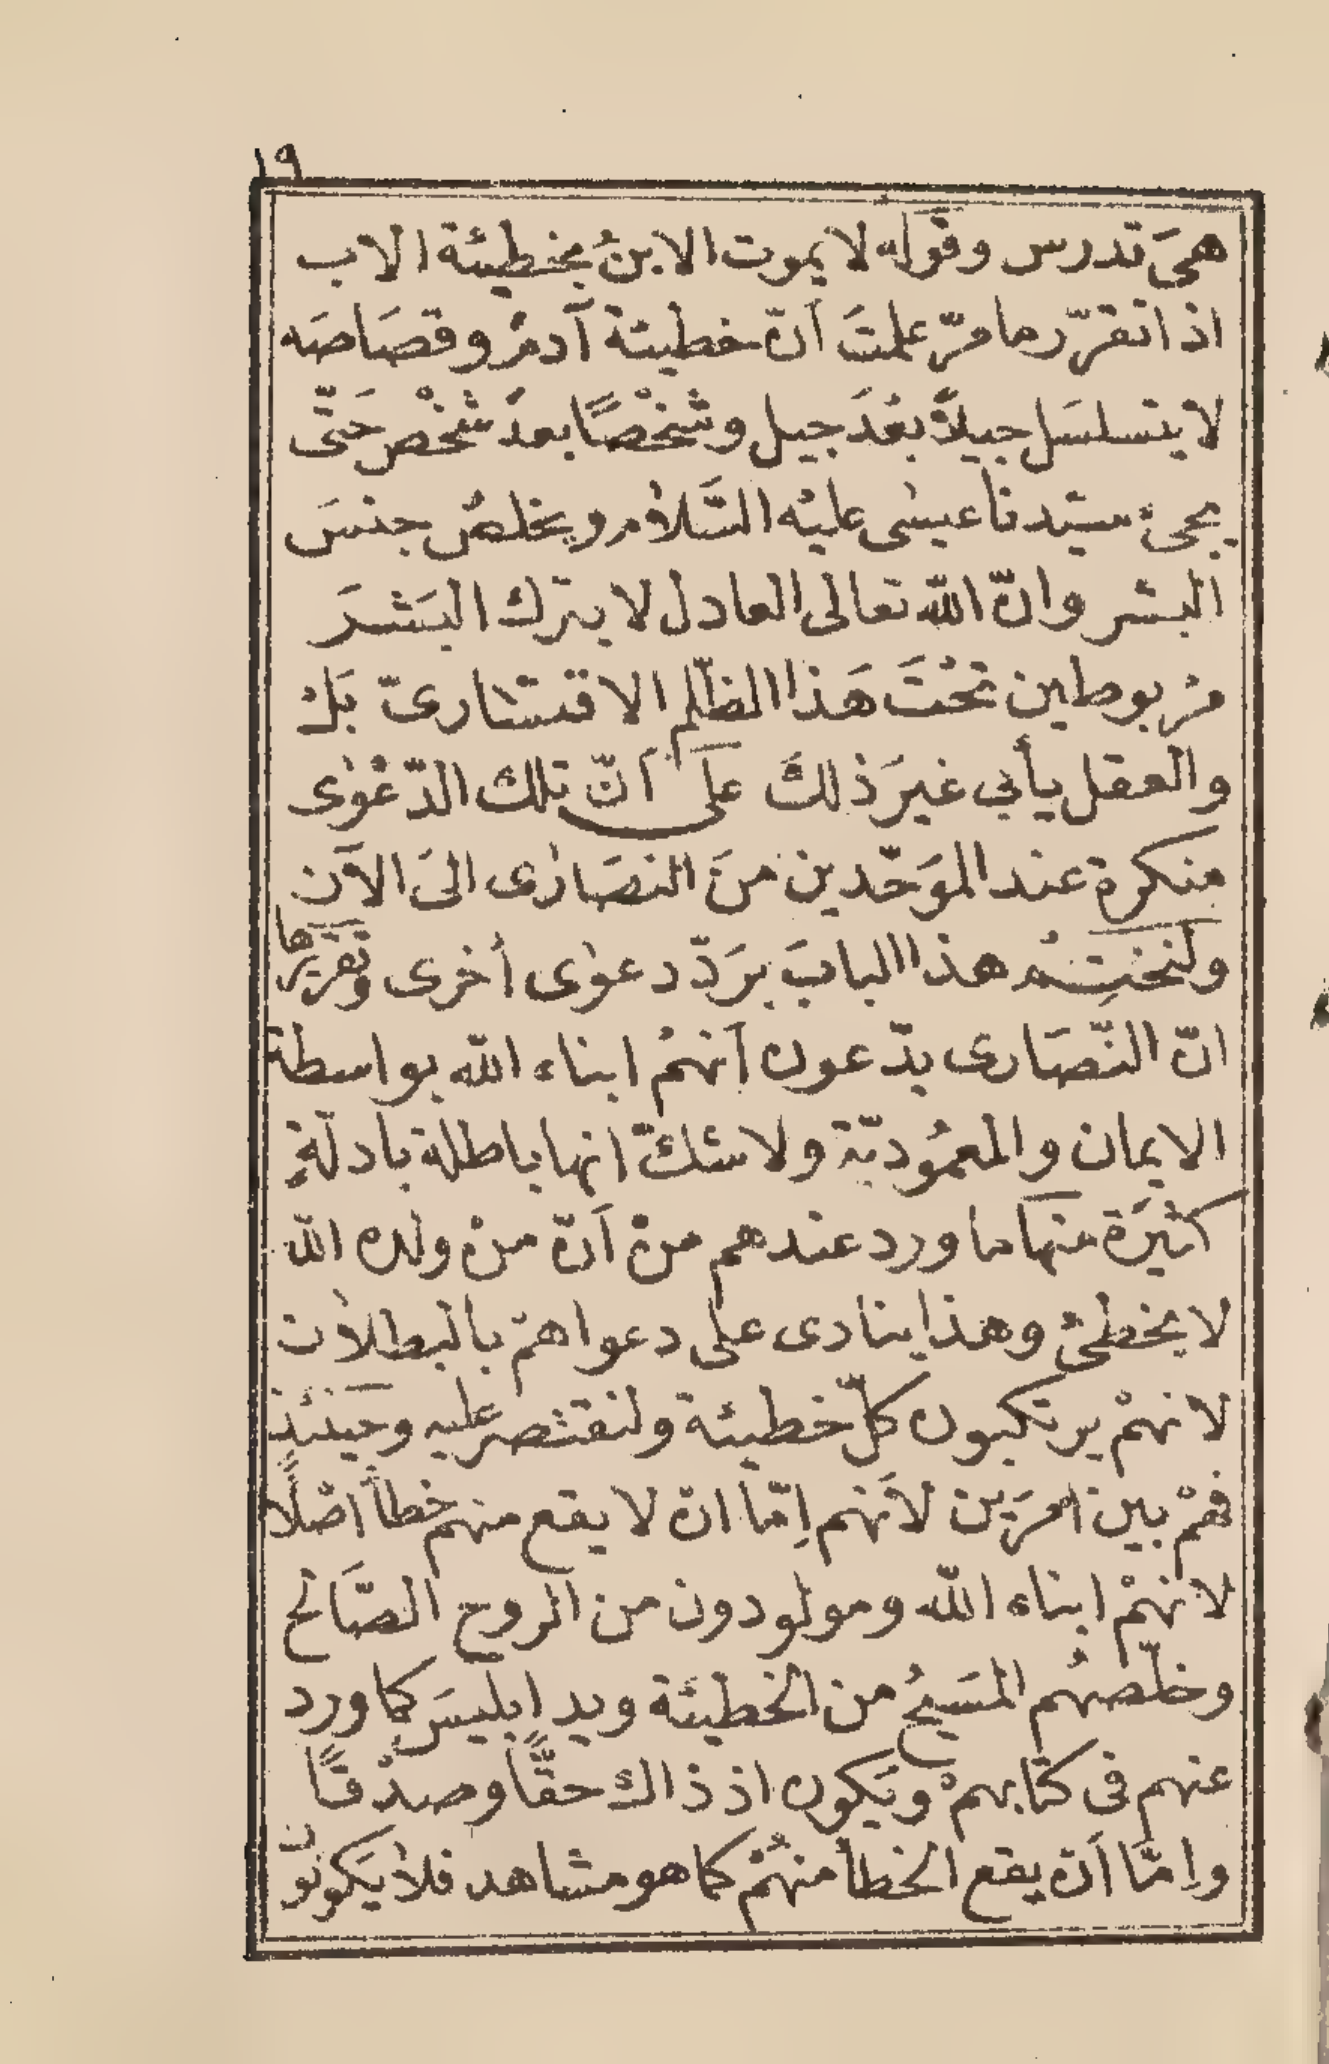 ١٩
هىَ تدرس وقَوله لا يموت الابنُ بخطيئة الاب
اذا تقرّر ما مرّ علمتَ أنّ خطيئة آدمْ وقصَاصَه
لا يتسلسَل جيلاً بعْدَ جيل وشخْصًا بعدَ شخْص حَتّى
يجئ سيّدنا عيسٰى عليْه السَّلاٰم ويخلصُ جنسَ
البشر وانّ اللّه تعالى العادل لا يترك البَشَرَ
مرْبوطين تحْتَ هَذا الظّلم الاقتشارىّ بَلْ
والعقل يأبى غيرَ ذلكَ علَى أنّ تلك الدّعْوٰى
منكرة عند الموَحّدين منَ النصَارٰى الىَ الآن
ولنختِتمُ هذا البابَ برَدّ دعوٰى أخرى وتقريرها
انّ النّصَارى يدّعون أنهمْ ابناء اللّه بواسطة
الايمان والمعمُوديّة ولا شكّ انها باطلة بادلّةٍ
كثيَرة منهَا ما ورد عندهم منْ أنّ منْ ولده اللّه
لا يخطئُ وهذا ينادى على دعواهمْ بالبطلاٰن
لانهمْ يرتكبون كلّ خطيئة ولنقتصر عليه وحينئذٍ
فهمْ بين امرَين لأنهم اِمّا ان لا يقع منهم خطأ اصْلًا
لانهمْ ابناء اللّه ومولودون من الروح الصَّالح
وخلّصهُم المسَيحُ من الخطيئة ويد اِبليسَ كما ورد
عنهم فى كتابهمْ ويَكون اذ ذاك حقًّا وصدْقًا
واِمّا أن يقع الخطأ منهُمْ كما هو مشاهد فلاٰ يَكونوْن